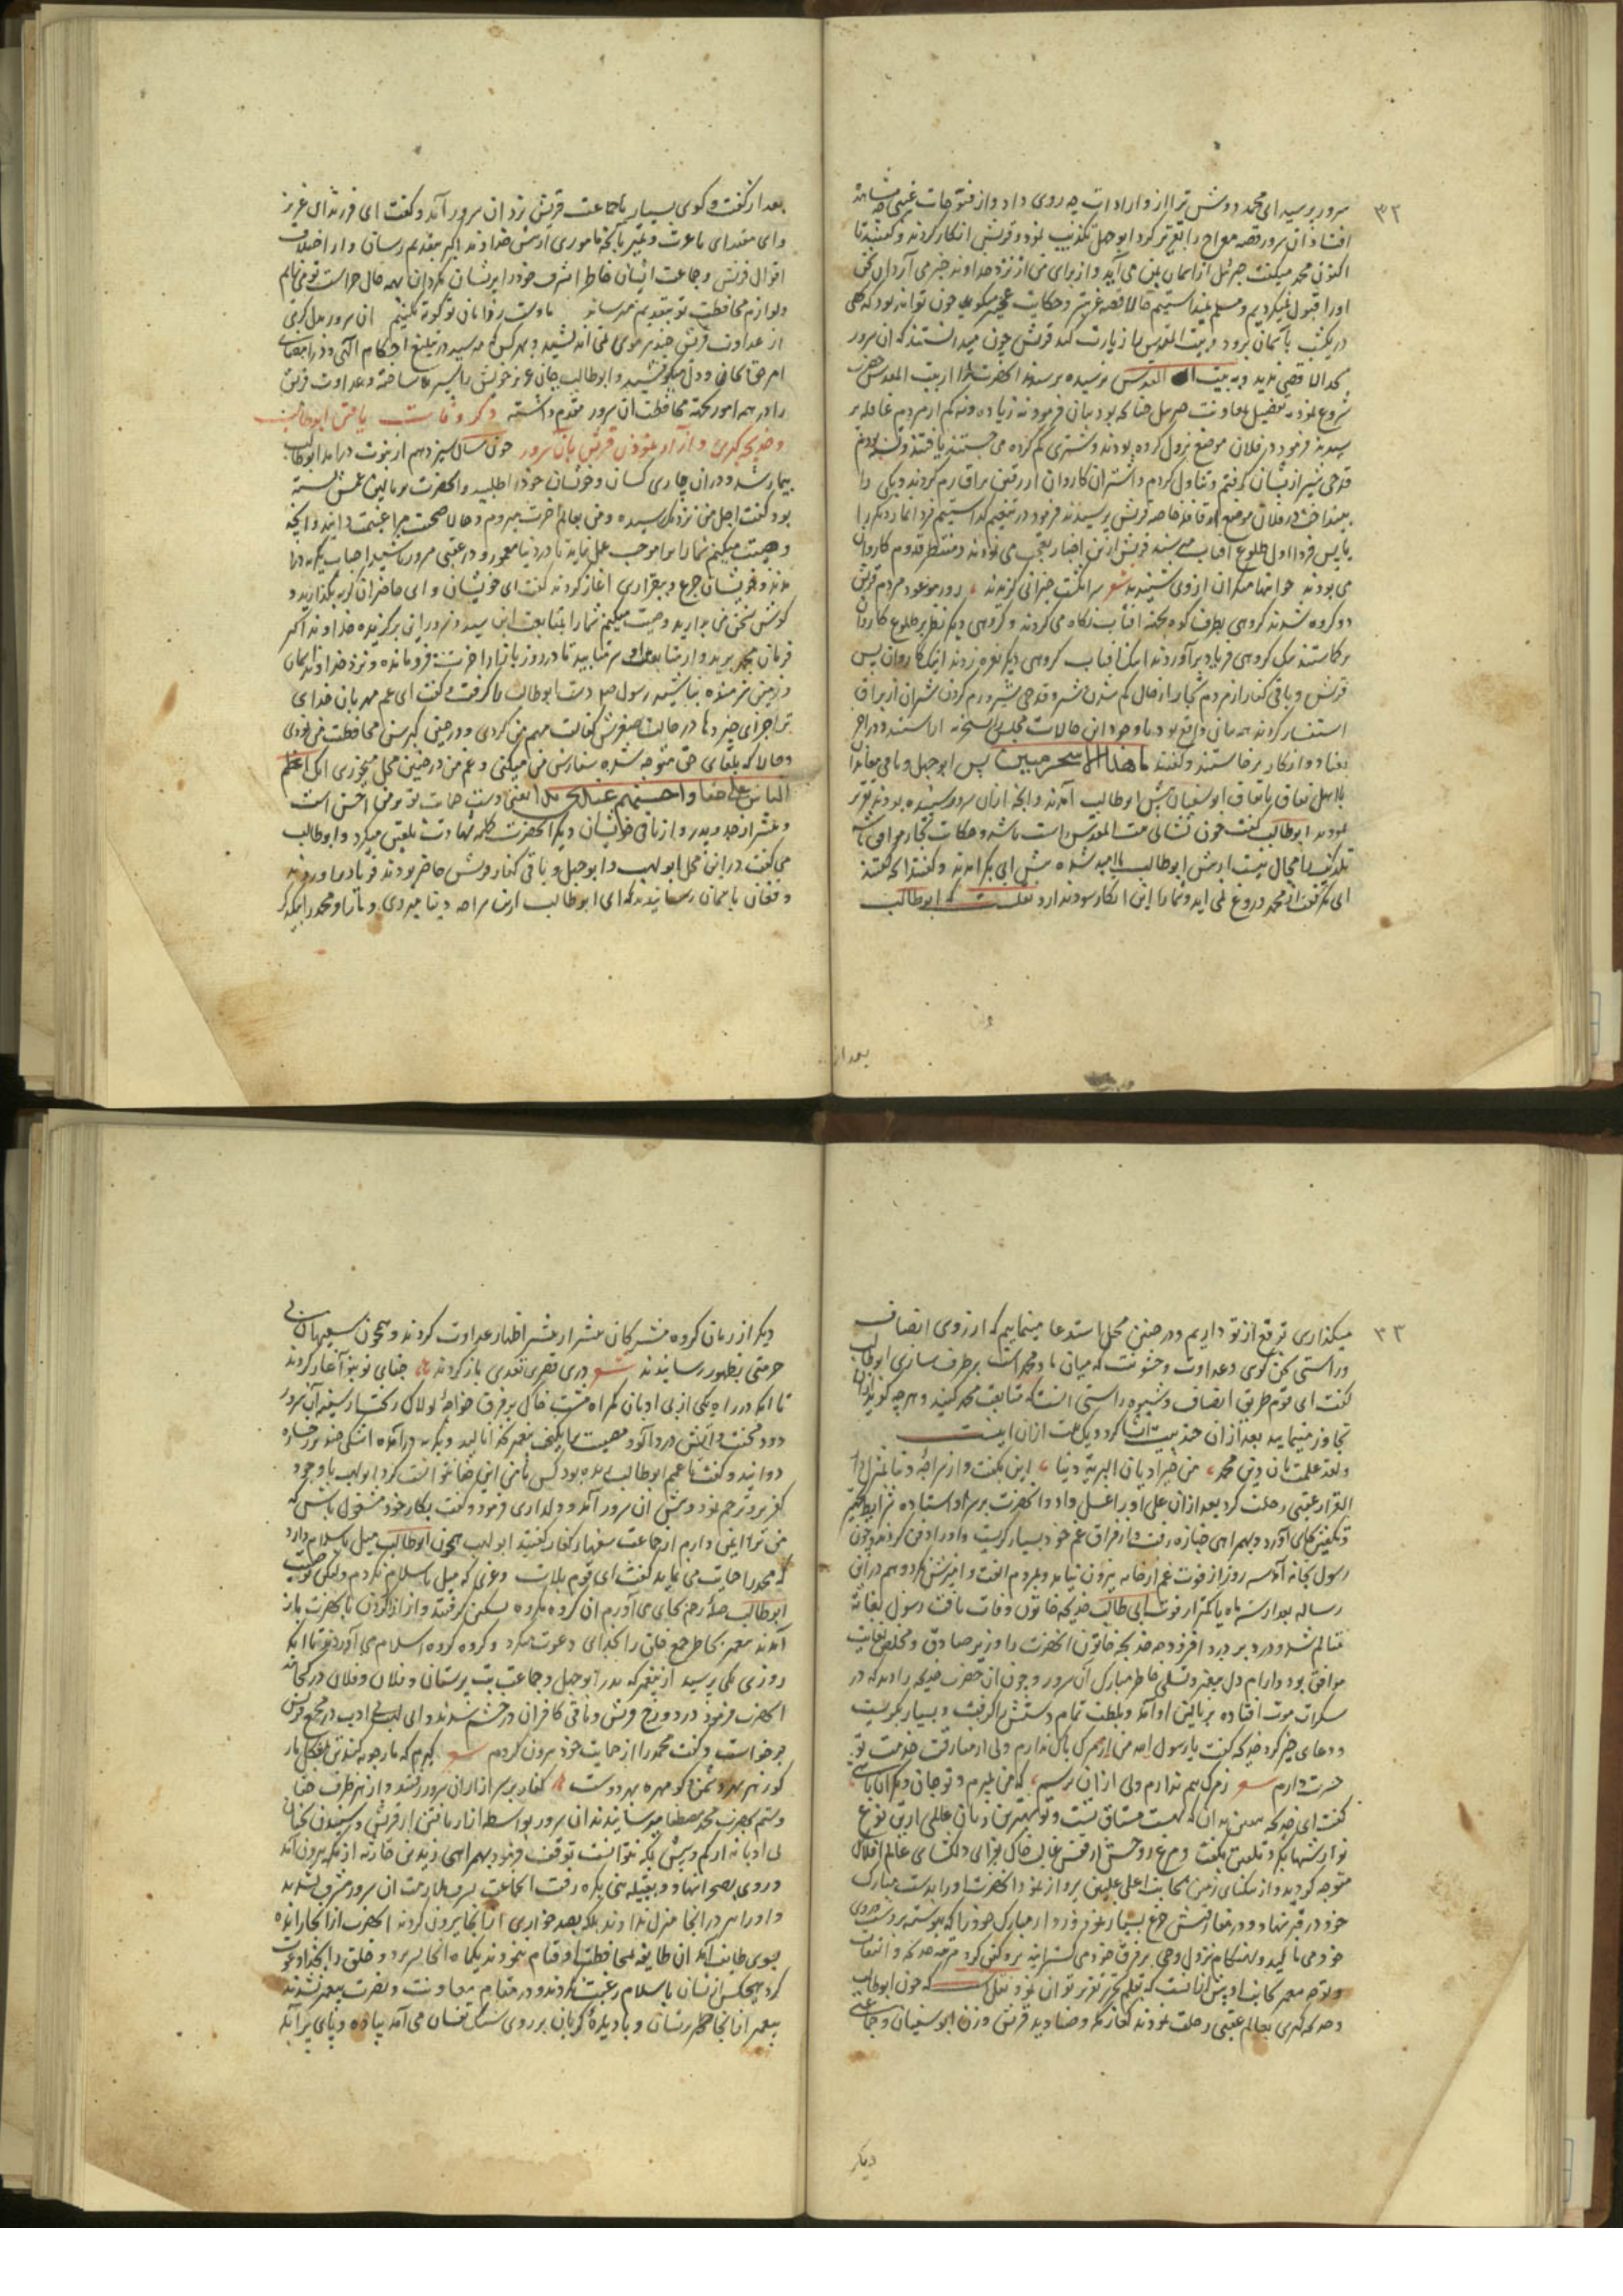 ۳۲
سرور پرسید ای محمد دوش ترا از واردات چه روی داد و از فتوحات غیبی چه مشاهده
افتاد آن سرور قصه معراج را تقریر کرد ابوجهل تکذیب نمود و قریش انکار کردند و گفتند تا
اکنون محمد میگفت جبرئیل از آسمان بمن می آید و از برای من از نزد خداوند خبر می آرد این سخن
اورا قبول نمیکردیم و مسلم نمیداشتیم حالا قصه غریبتر و حکایت عجیبتر میگوید چون تواند بود که کسی
در یکشب بآسمان برود و بیت المقدس را زیارت کند قریش چون میدانستند که آن سرور
المقدس نرسیده پرسیدند آنحضرت را از بیت المقدس
شروع نمود بتفصیل بمعاونت جبرئیل چنانکه بود بیان فرمود نه زیاده و نه کم از مردم قافله پر
سیدند فرمود در فلان موضع نزول کرده بودند و شتری گم کرده می جستند یافتند و تشنه بودم
قدحی شیر از ایشان گرفتم و تناول کردم و شتران کاروان از رفتن براق رم کردند و یکی را
بینداخت در فلان موضع از قافله خاصه قریش پرسیدند فرمود در تنعیم گذاشتیم فردا نماز دیگر را
یا پس فردا اول طلوع آفتاب می رسند قریش ازین اخبار تعجب می نمودند و منتظر قدوم کاروان
می بودند شعر سر انگشت حیرانی گزیدند روز موعود مردم قریش
دو گروه شدند گروهی بطرف کوه بجهة آفتاب نگاه می کردند و گروهی دیگر نظر بر طلوع کاروان
بر گماشتند یک گروهی فریاد برآوردند اینک آفتاب گروهی دیگر نعره زدند اینک کاروان پس
قریش و باقی کفار از مردم تجار از حال گم شدن شتر و قدحی شیر و رم کردن شتران از براق
استفسار کردند همه بیان واقع بود با وجود این حالات مجلس
بعناد و انکار برخاستند و گفتند ما هذا الا سحر مبین پس ابوجهل و باقی معاندان
با اهل نفاق باتفاق ابوسفیان پیش ابوطالب آمدند و آنچه از آن سرور شنیده بودند تقریر
نمودند ابوطالب گفت چون نشانی بیت المقدس راست باشد و حکایت تجار موافق باشد
تکذیب را مجال نیست از پیش ابوطالب ناامید شده پیش ابی بکر آمدند و گفتند آنچه گفتند
ابی بکر گفت از محمد دروغ نمی آید و شما را این انکار سود ندارد نقلست که ابوطالب
بعد از
بعد از گفت و گوی بسیار با جماعت قریش نزد آن سرور آمد و گفت ای فرزند عزیز
وای مقتدای با عزت و تمیز بآنچه ماموری از پیش خداوند اکبر بتقدیم رسان و از اختلاف
اقوال قریش و جماعت ایشان خاطر اشرف خود را پریشان مگردان بهمه حال حراست تو می نمایم
ولوازم محافظت تو بتقدیم میرسانم ما دست ز دامان تو کوته نکنیم آن سرور بدل گرمی
از عداوت قریش چندین موی نمی اندیشید و بهر کس که میرسید در تبلیغ احکام الهی و در امضای
امر حق بجان و دل میکوشید و ابوطالب جان عزیز خویش را سپر بلا ساخته و عداوت قریش
را در همه امور بجهة محافظت آن سرور مقدم داشته ذکر وفات یافتن ابوطالب
و خدیجه کبری و آزار نمودن قریش بآن سرور چون سال سیزدهم از نبوت درآمد ابوطالب
بیمار شد و در آن بیماری کسان و خویشان خود را طلبید و آنحضرت بر بالین عمش نشسته
بود گفت اجل من نزدیک رسیده و من بعالم آخرت میروم و حالا صحبت مرا غنیمت دانید و آنچه
وصیت میکنم شما را بر آن موجب عمل نمایید تا در دنیا معمور و در عقبی مسرور باشید احباب بگریه در
آمدند و خویشان جزع و بیقراری آغاز کردند گفت ای خویشان و ای حاضران گریه بگذارید و
گوش بسخن من بدارید وصیت میکنم شما را بمتابعت این سید و سرور این برگزیده خداوند اکبر
فرمان محمد برید و از متابعت او سر متابید تا در روز بازار آخرت فرومانده و نزد خداوند جهان
و زمین شرمنده نباشید رسول صلعم دست ابوطالب را گرفت و گفت ای عم مهربان خدای
ترا جزای خیر دهاد در حالت صغر سن کفالت مهم من کردی و در حین کبر سن محافظت من نمودی
و حالا که بلقای حق متوجه شده سفارش من میکنی و غم من در چنین محل میخوری انک اعظم
الناس علی حقا و احسنهم عندی یدا یعنی دست حمایت تو بر من احسن است
و بیشتر از جد و پدر و از باقی خویشان و دیگر آنحضرت کلمه شهادت تلقین میکرد و ابوطالب
می گفت در این محل ابولهب و ابوجهل و باقی کفار قریش حاضر بودند فریاد برآوردند
و فغان بآسمان رسانیدند که ای ابوطالب ازین سراچه دنیا میروی و ما را و محمد را بیکدیگر
۳۳
میگذاری توقع از تو داریم و در چنین محل استدعا مینماییم که از روی انصاف
و راستی سخن گوی و عداوت و خشونت که میان ما و محمد است برطرف سازی ابوطالب
گفت ای قوم طریق انصاف و شیوه راستی آنست که متابعت محمد کنید و هرچه گوید از آن
تجاوز منمایید بعد از آن چند بیت انشا کرد و یک بیت از آن اینست
ولقد علمت بان دین محمد من خیر ادیان البریة دینا این بگفت و از سراچه دنیا بمنزل دار
القرار عقبی رحلت کرد بعد از آن علی او را غسل داد و آنحضرت بر سر او استاده شرایط تجهیز
و تکفین بجای آورد و بهمراهی جنازه رفت و از فراق غم خود بسیار گریست و او را دفن کردند و چون
رسول بخانه آمد سه روز از فوت عم از خانه بیرون نیامد و بمردم الفت و آمیزش نکرد و هم درین
رساله بعد از سه ماه یا کمتر از فوت ابی طالب خدیجه خاتون وفات یافت رسول بغایت
متالم شد و درد بر درد افزود چه خدیجه خاتون آنحضرت را وزیر صادق و مخلص بغایت
موافق بود و آرام دل پیغمبر و تسلی خاطر مبارک آن سرور و چون آن حضرت خدیجه را دید که در
سکرات موت افتاده بر بالین او آمد و بلطف تمام دستش را گرفت و بسیار بگریست
و دعای خیر کرد خدیجه گفت یا رسول الله من از مرگ باک ندارم ولی از مفارقت خدمت تو
حسرت دارم شعر ز مرگ بیم ندارم ولی از آن ترسم که من بمیرم و تو جان دیگران باشی
گفت ای خدیجه یقین بدان که بهشت مشتاق تست و تو بهترین زنان عالمی ازین نوع
نوازشها بکرد و تلقین بگفت و مرغ روحش از قفس قالب خاکی بهوای دلگشای عالم افلاک
متوجه گردید و از تنگنای زمین بجانب اعلی علیین پرواز نمود آنحضرت او را بدست مبارک
خود در قبر نهاد و در مفارقتش جزع بسیار نمود و رو از مبارک خود را که پیوسته بر دست
خود می مالید و بهنگام نزول وحی بر فرق خود می گسترانید بر وی کفن کرد
و توجه پیغمبر بجانب او بیش از آنست که بقلم تحریر تقریر توان نمود نقل است که چون ابوطالب
و خدیجه کبری بعالم عقبی رحلت نمودند کفار مکه و صنادید قریش وزن ابوسفیان و جماعتی
دیگر
دیگر از زنان گروه مشرکان بیشتر از پیشتر اظهار عداوت کردند و همچون سفیهان بی
حرمتی بظهور رسانیدند شعر دری بهر تعدی باز کردند جفای نو بنو آغاز کردند
تا آنکه در راه یکی از بی ادبان گمراه مشت خاک بر فرق خواجه لولاک ریخت از سینه آن سرور
دود محنت و آتش درد آلود مصیبت برانگیخت پیغمبر بخانه آمد و بگریه درآمده اشک چند بر رخساره
دوانید و گفت تا عمم ابوطالب زنده بود کس با من این جفا نتوانست کرد ابولهب با وجود
کفر برو ترحم نمود و پیش آن سرور آمد و دلداری فرمود و گفت بکار خود مشغول باش که
من ترا ایمن دارم از جماعت سفهاء کفار گفتند ابولهب همچون ابوطالب میل باسلام دارد
که محمد را حمایت می نماید گفت ای قوم بلات و عزی که میل باسلام نکردم ولیکن وصیت
ابوطالب صله رحم بجای می آورم آن گروه مکروه تسکین گرفتند و از آزار کردن با آنحضرت باز
آمدند پیغمبر بخاطر جمع خلق را بخدای دعوت میکرد و گروه گروه اسلام می آوردند تا آنکه
روزی یکی پرسید از پیغمبر که پدر ابوجهل و جماعت بت پرستان و فلان و فلان در کجااند
آنحضرت فرمود در دوزخ قریش و باقی کافران در خشم شدند و ابی لهب بی ادب در مجمع قریش
برخواست و گفت محمد را از حمایت خود بیرون کردم شعر گیرم که مارچوبه کند تن بشکل مار
کو زهر بهر دشمن کو مهره بهر دوست کفار بر سر آزار آن سرور رفتند و از هر طرف جفا
وستم بحضرت محمد مصطفی میرسانیدند آن سرور بواسطه آزار یافتن از قریش و شنیدن سخنان
بی ادبانه از کم و بیش بمکه نتوانست توقف فرمود بهمراهی زید بن حارثه از مکه بیرون آمد
و روی بصحرا نهاد و بقبیله بنی بکر رفت آنجماعت بشرف ملازمت آن سرور مشرف نشدند
و او را هم در آنجا منزل ندادند بلکه بصد خواری از آنجا بیرون کردند آنحضرت از آنجا رانده
بسوی طایف آمد آن طایفه بمحافظت او قیام ننمودند یکماه آنجا بسر برد و خلق را بخدا دعوت
کرد هیچکس از ایشان باسلام رغبت نکردند و در مقام معاونت و نصرت پیغمبر نشدند
پیغمبر از آنجا خاطر پریشان و با دیده گریان بر روی سنگستان می آمد پیاده و پای پر آبله